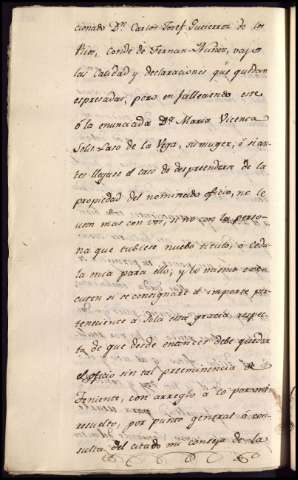 cionado Dn. Carlos Josef Gutierrez de los
Rios, Conde de Fernan Nuñez, vajo
las calidad y declaraciones que quedan
espresadas, pero en falleciendo este
ó la enunciada Da. Maria Vicenta
Solis Laso de la Vega, su muger, ó si an-
tes llegase el caso de desprenderse de la
propiedad del nominado oficio, no le
usen mas con voz, si no con la perso-
na que tubiese nuebo titulo, ó Cedu-
la mia para ello; y lo mismo
cuten si se consignase el importe per-
teneciente á sola esta gracia, respec-
to de que desde entonces debe quedar
el oficio sin tal preeminencia
Teniente, con arreglo á lo por mi
resuelto, por punto general á con-
sulta del citado mi Consejo de la